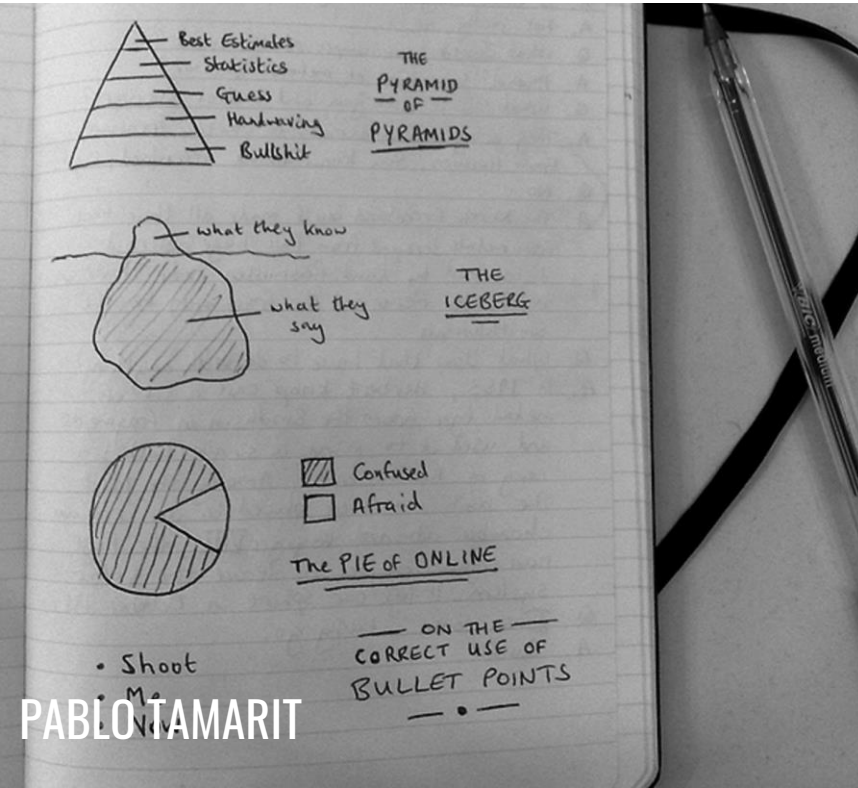 Best Estimates
Statistics
Guess
Handwaving
Bullshit
THE
PYRAMID
OF
PYRAMIDS
what they know
what they
say
THE
ICEBERG
Confused
Afraid
The PIE of ONLINE
• Shoot
• Me
• Now
ON THE
CORRECT USE OF
BULLET POINTS
PABLO TAMARIT
BIC medium